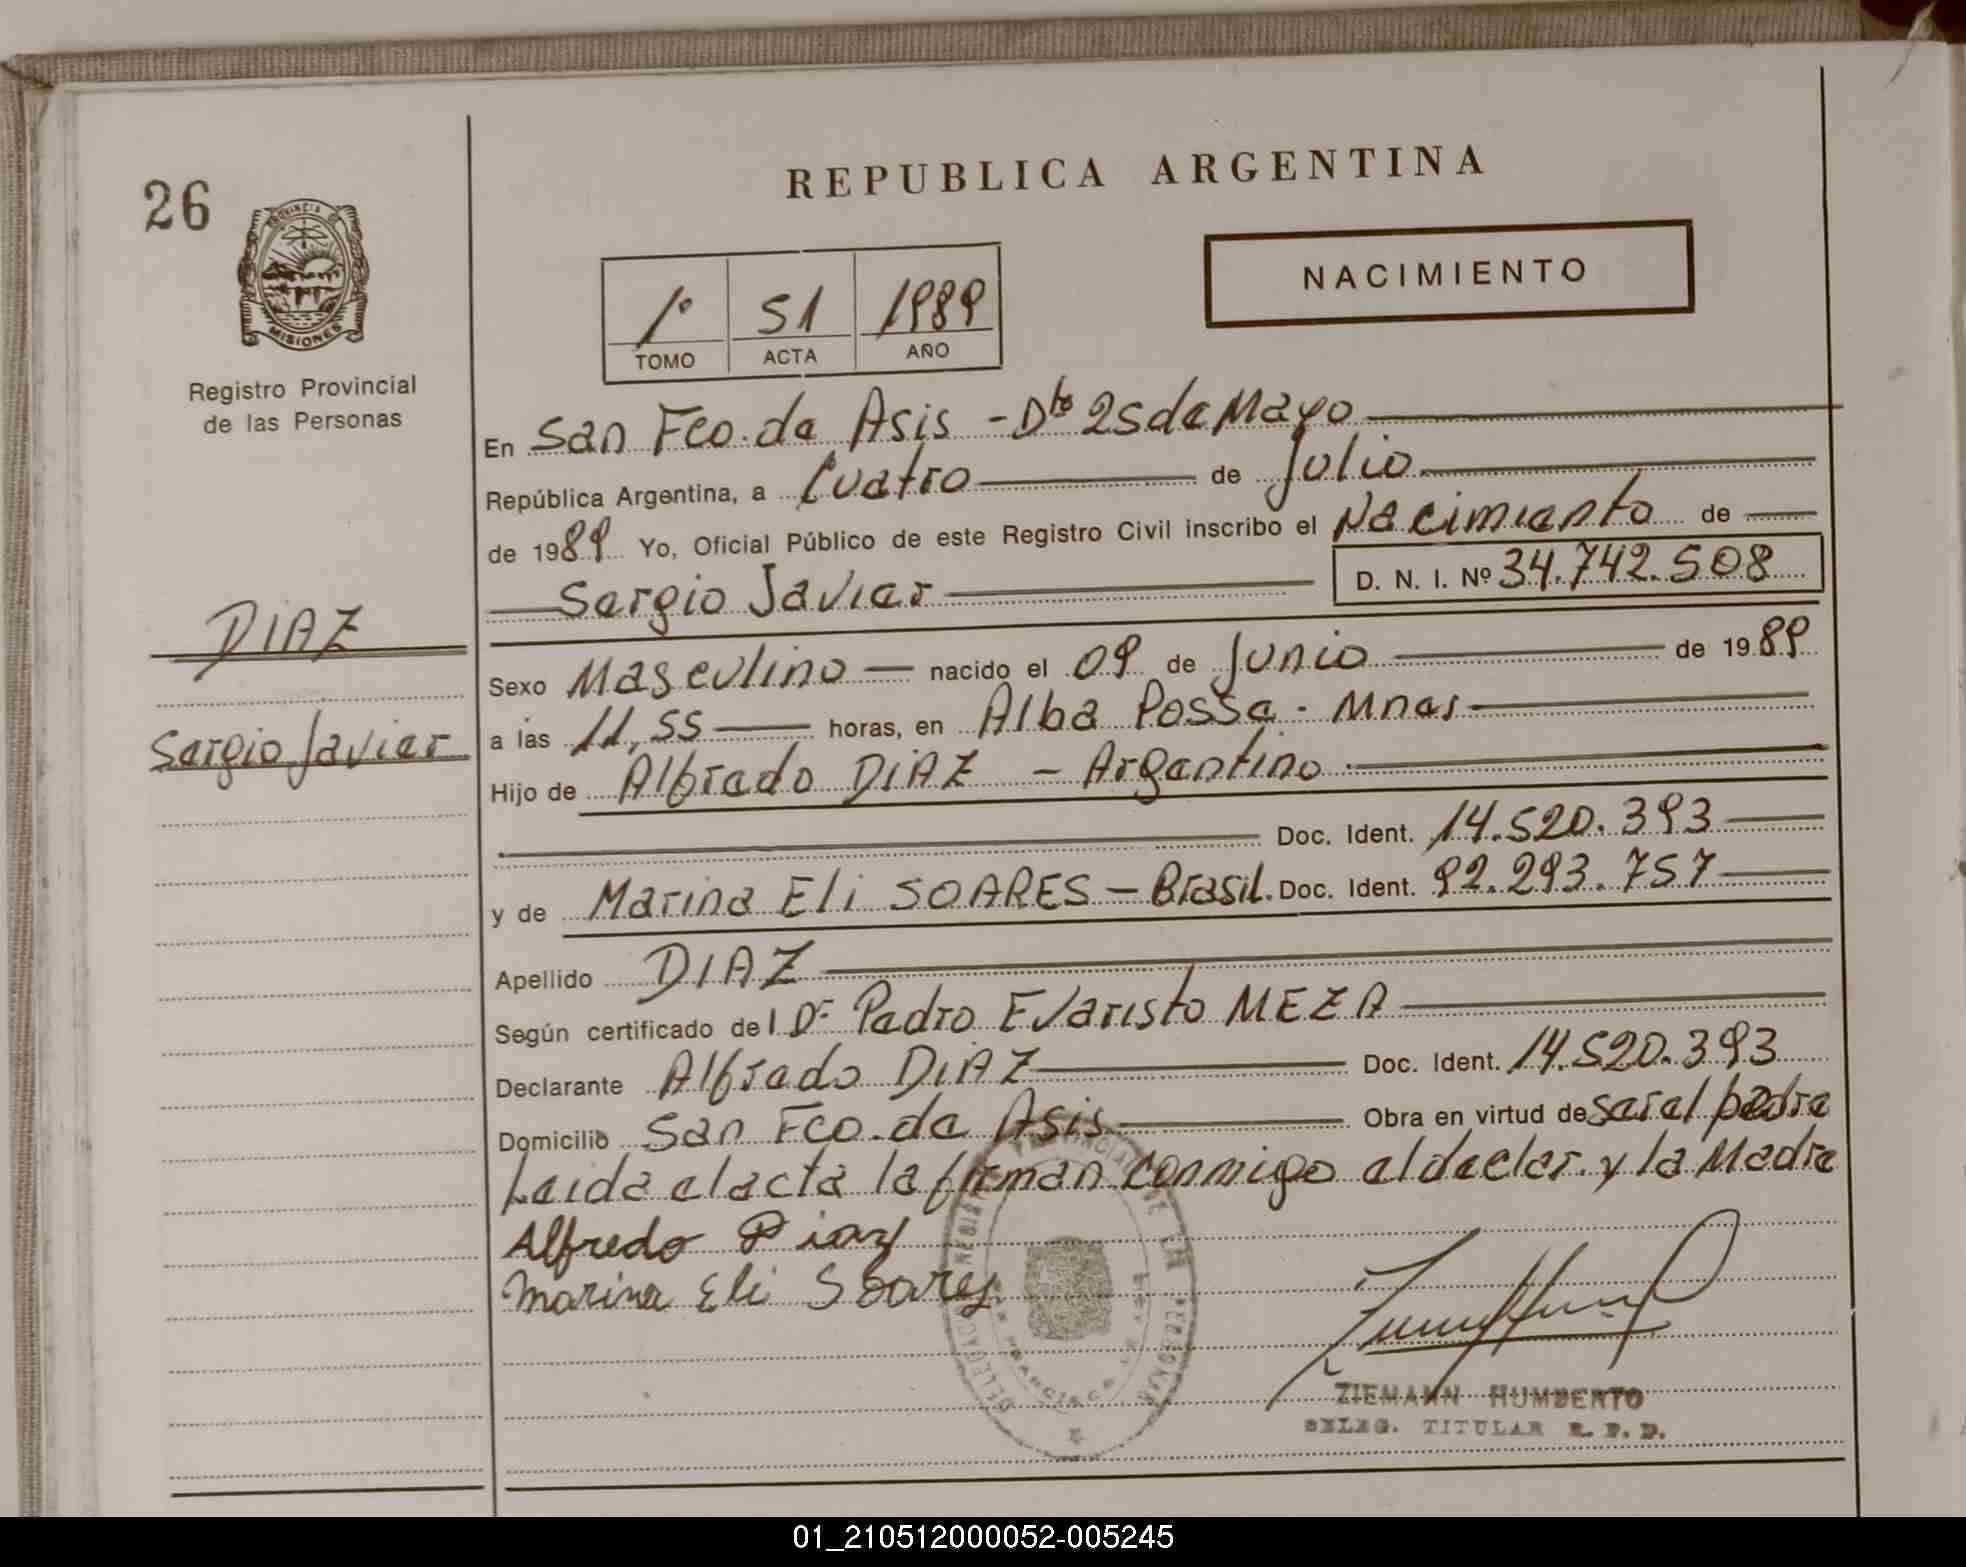 26
PROVINCIA DE
MISIONES
Registro Provincial
de las Personas
REPUBLICA ARGENTINA
NACIMIENTO
1º 51 1989
TOMO ACTA AÑO
En San Fco. de Asis - Dto 25 de Mayo
República Argentina, a Cuatro de Julio
de 1989 Yo, Oficial Público de este Registro Civil inscribo el Nacimiento de
Sergio Javier D. N. I. Nº 34.742.508
DIAZ
Sergio Javier
Sexo Masculino nacido el 09 de Junio de 1989
a las 11,55 horas, en Alba Posse - Mnes
Hijo de Alfredo DIAZ - Argentino
Doc. Ident. 14.520.393
y de Marina Eli SOARES - Brasil. Doc. Ident. 92.293.757
Apellido DIAZ
Según certificado del Dr Pedro Evaristo MEZA
Declarante Alfredo DIAZ Doc. Ident. 14.520.393
Domicilio San Fco. de Asis Obra en virtud de ser el padre
Leida el acta la firman conmigo el declar. y la Madre
Alfredo Diaz
Marina Eli Soares
ZIEMANN HUMBERTO
DELEG. TITULAR R. P. P.
01_210512000052-005245